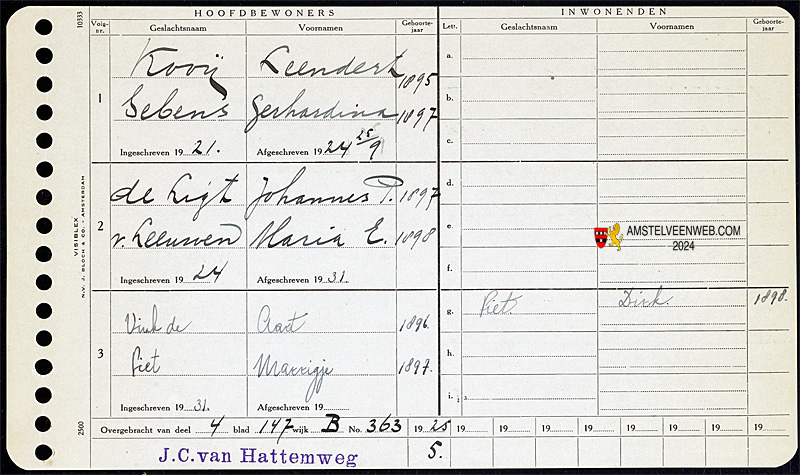 HOOFDBEWONERS INWONENDEN
10333 Volgnr. Geslachtsnaam Voornamen Geboortejaar Lett. Geslachtsnaam Voornamen Geboortejaar
Kooij Leendert 1895 a.
1 Gebens Gerhardina 1897 b.
Ingeschreven 19 21. Afgeschreven 19 24 25/9 c.
de Ligt Johannes P. 1897 d.
2 v. Leeuwen Maria E. 1898 e.
Ingeschreven 19 24 Afgeschreven 19 31. f.
Vink de Aart 1896. g. Piet. Dirk. 1898.
3 Piet Marrigje 1897. h.
Ingeschreven 19 31. Afgeschreven 19 i.
Overgebracht van deel 4 blad 147 wijk B No. 363 19 25 19 19 19 19 19 19 19 19
J.C. van Hattemweg 5.
VISIBLEX
N.V. J. BLOCH & CO. - AMSTERDAM
2500
AMSTELVEENWEB.COM
2024